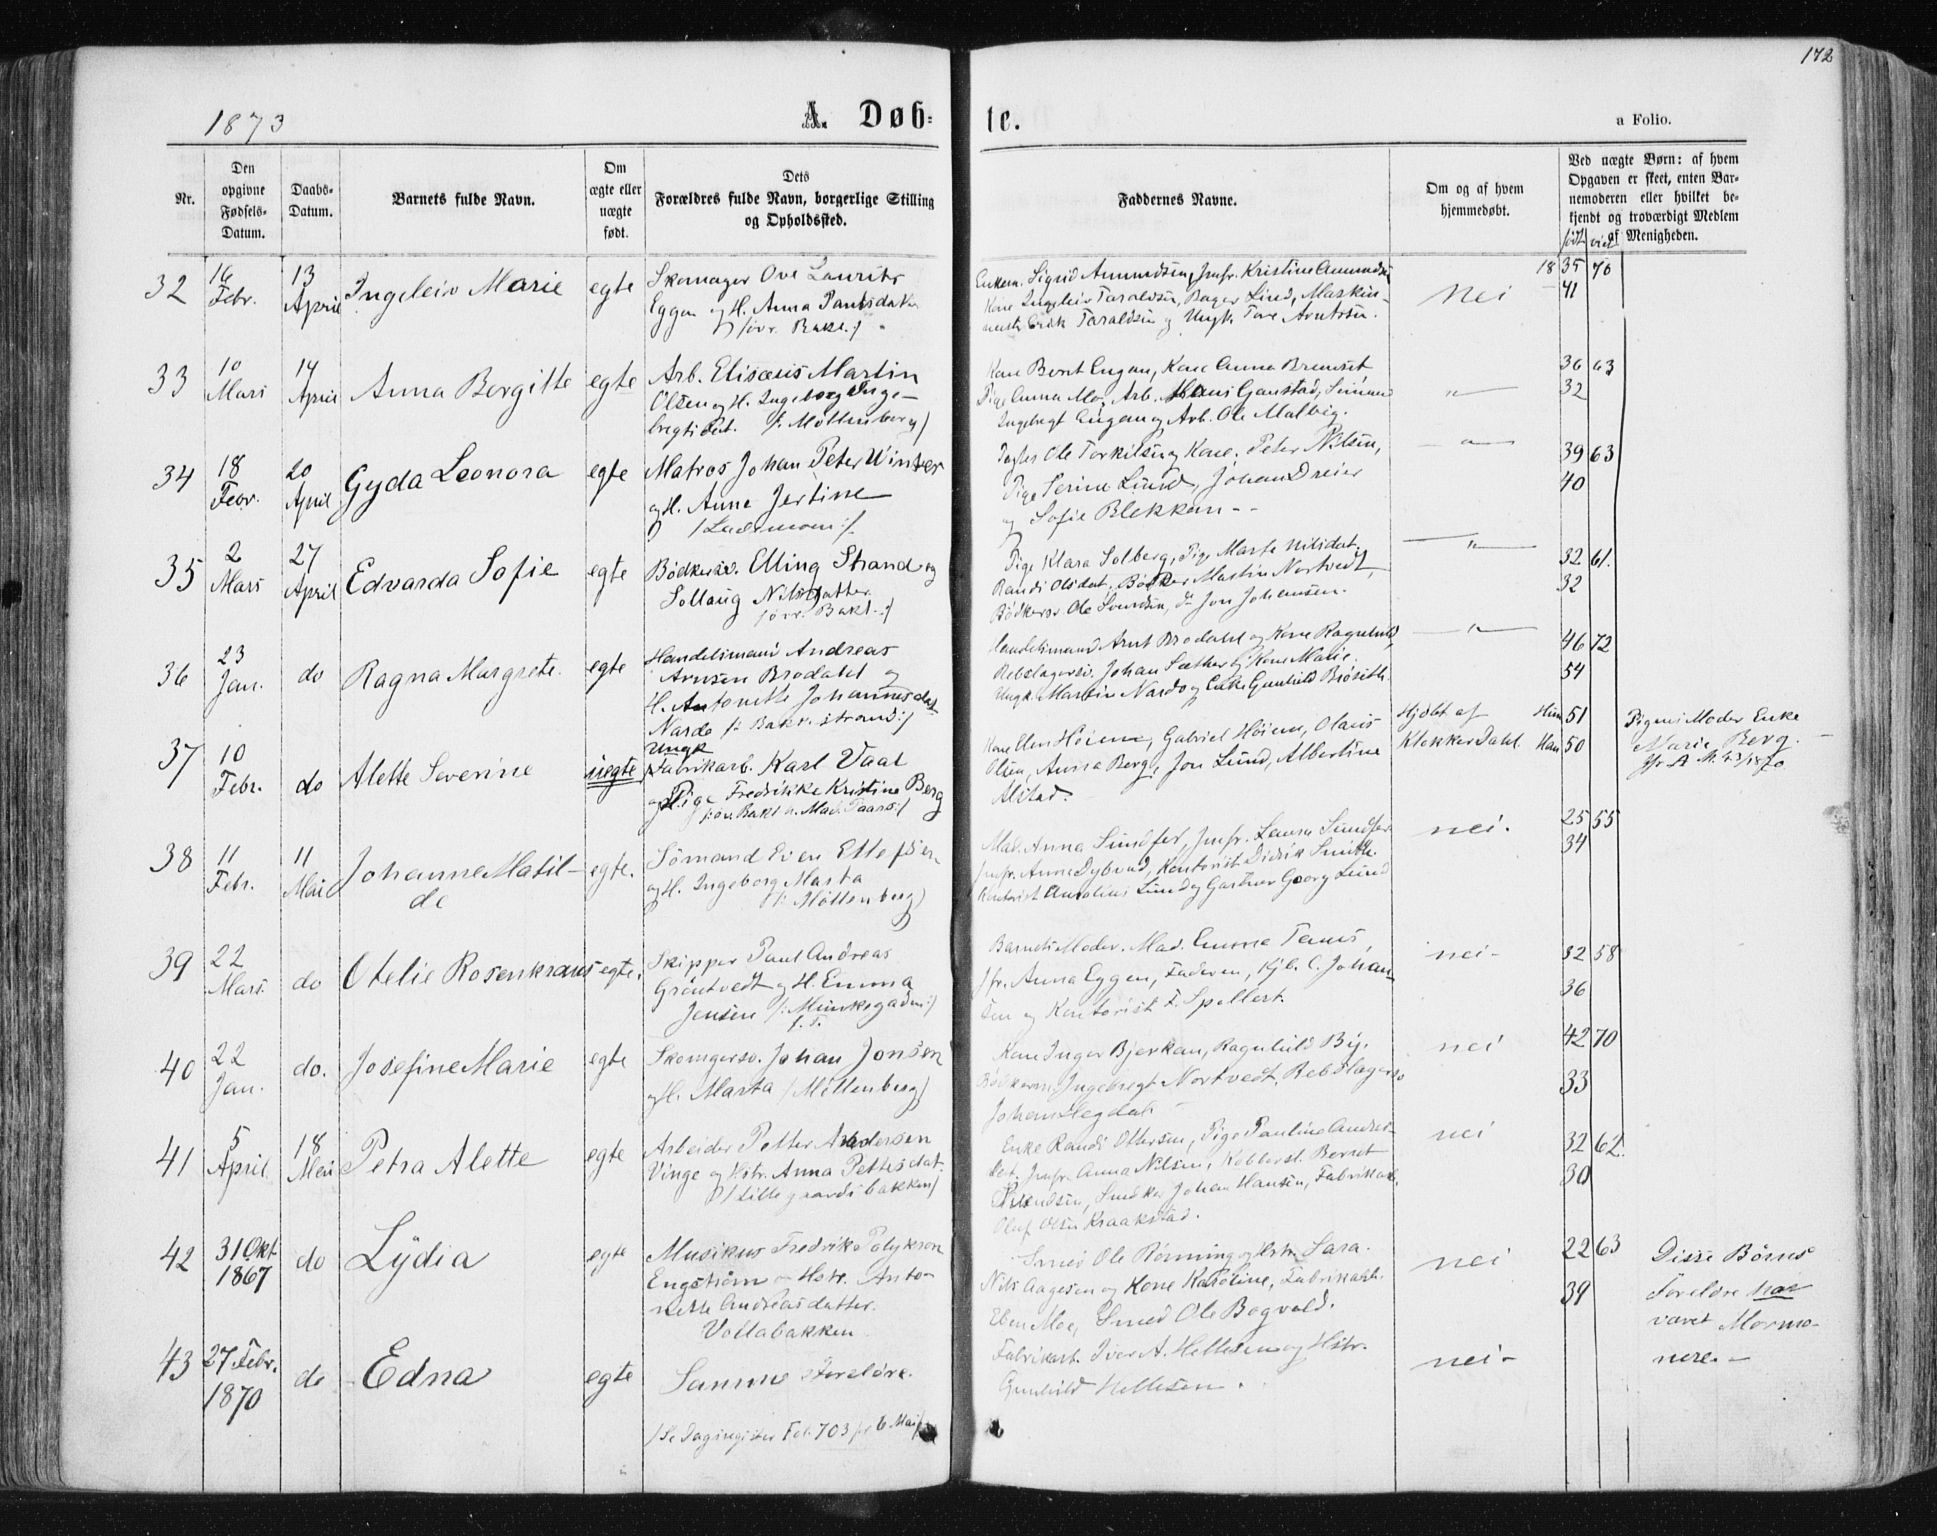 172
1873
A. Døb-
te.
a Folio.
Nr.
Den opgivne Fødsels-Datum.
Daabs-Datum.
Barnets fulde Navn.
Om ægte eller uægte født.
Dets Forældres fulde Navn, borgerlige Stilling og Opholdssted.
Faddernes Navne.
Om og af hvem hjemmedøbt.
Ved uægte Børn: af hvem Opgaven er skeet, enten Barnemoderen eller hvilket bekjendt og troværdigt Medlem af Menigheden.
født viet
32 16 Febr. 13 April Ingeleiv Marie egte
Skomager Ove Laurits
Eggen og H. Anna Paulsdatter
/øvr. Bakl.:/
Enkem. Sigrid Amundsen, Jmfr. Kristine Amundsen
Kone Ingeleiv Taraldsen, Bager Lind, Maskin-
mestr Erik Taraldsen og Ungk. Tore Arntsen.
Nei
18 35 70
41
33 10 Mars 14 April Anna Bergitte egte
Arb. Elisæus Martin
Olsen og H. Ingeborg Inge-
brigtsdat. /: Møllenberg/
Kone Beret Engan, Kone Anna Bremset
Pige Anna Moe, Arb. Ganstad,
Ingebregt Engan og Arb. Ole Malvig.
"
36 63
32
34 18 Febr. 20 April Gyda Leonora egte
Matros Johan Peter Winter
og H. Anna Jertine
/Ladermoen:/
Ole Torkilsen og Kone, Peter Nilsen,
Pige Serine Lund, Johan Dreier
og Sofie Blekkan - -
"
39 63
40
35 2 Mars 27 April Edvarda Sofie egte
Bødkersv. Elling Strand og
Sollaug Nilsdatter
/øvr. Bakl.:/
Pige Klara Solberg, Pige Marta Nilsdat.
Randi Olsdat, Bødker Martin Nortvedt,
Bødkersv Ole Svendsen, do Jon Johansen.
"
32 61.
32
36 23 Jan. do Ragna Margrete. egte
Handelsmand Andreas
Arnsen Brodahl og
H. Antonette Johannesdat
Nardo /: Bakl. strand:/
Handelsmand Arnt Brodahl og Kone Ragnhild,
Rebslagersv. Johan Sæther og Kone Marie.
Ungk. Martin Nardo og Enke Gunhild Brøseth.
"
46 72
54
37 10 Febr. do Alette Severine uegte
Ungk
Fabrikarb. Karl Vaal
og Pige Fredrikke Kristine Berg
/:øvr. Bakl. Mad. Paars:/
Kone Elen Høiem, Gabriel Høiem, Olaus
Olsen, Anna Berg, Jon Lund, Albertine
Alstad.
Hjdbt af
Klokker Dahl.
Hun 51
Han 50
Pigens Moder Enke
Marie Berg.
38 11 Febr. 11 Mai Johanne Matil-
de egte.
Sømand Even Ellefsen
og H. Ingeborg Marta
/: Møllenberg/
Mad. Anna Sundfær, Jmfr. Laura Sundfær
Jmfr. Anne Dybvad, Kontorist Didrik Smith.
Kontorist Aurelius Lund og Gartner Georg Lund
nei.
25 55
34
39 22 Mars do Otelie Rosenkrans egte.
Skipper Paul Andreas
Grøntvedt og H. Emma
Jensen /: Munkegaden:/
Barnets Moder. Mad. Emma
Jfr. Anna Eggen, Faderen, Kjb. C. Johan-
sen og Kontorist F. Spellert.
nei-
32 58
36
40 22 Jan. do. Josefine Marie egte
Skomgersv. Johan Jonsen
og H. Marta /Møllenberg/
Kone Inger Bjerkan, Ragnhild By.
Bødkerm. Ingebregt Nortvedt, Rebslagersv
Johan Hegdal.
nei
42 70
33
41 5 April 18 Mai Petra Alette egte
Arbeider Petter Andersen
Vinge og Hstr. Anna Pettersdat.
/:Lillegaardsbakken/
Enke Randi Ottersen, Pige Pauline Anders-
dat. Jmfr. Anna Nilsen, Kobberst. Bernt
Svendsen, Snedker Johan Hansen, Fabrikarb.
Oluf Olsen Kraakstad.
nei
32 62.
30
42 31 Okt. 1867 do Lydia egte
Musikus Fredrik Polykron
Engstrøm og Hstr. Anto-
nette Andreasdatter.
Vollabakken.
Smed Ole Rønning og Hstr. Sara.
Nils Aagesen og Kone Karoline, Fabrikarb.
Eben Moe, Smed Ole Bogvold.
nei
22 63
39
Disse Børns
Forældre har
været Mormo-
nere. -
43 27 Febr. 1870 do Edna egte
Samme Forældre.
/Se Dagregister Fol. 703 for 6 Mai/
Fabrikarb. Iver A. Hellesen og Hstr.
Gunhild Hellesen.
nei-